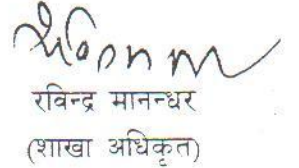 रविन्द्र मानन्धर
(शाखा अधिकृत)